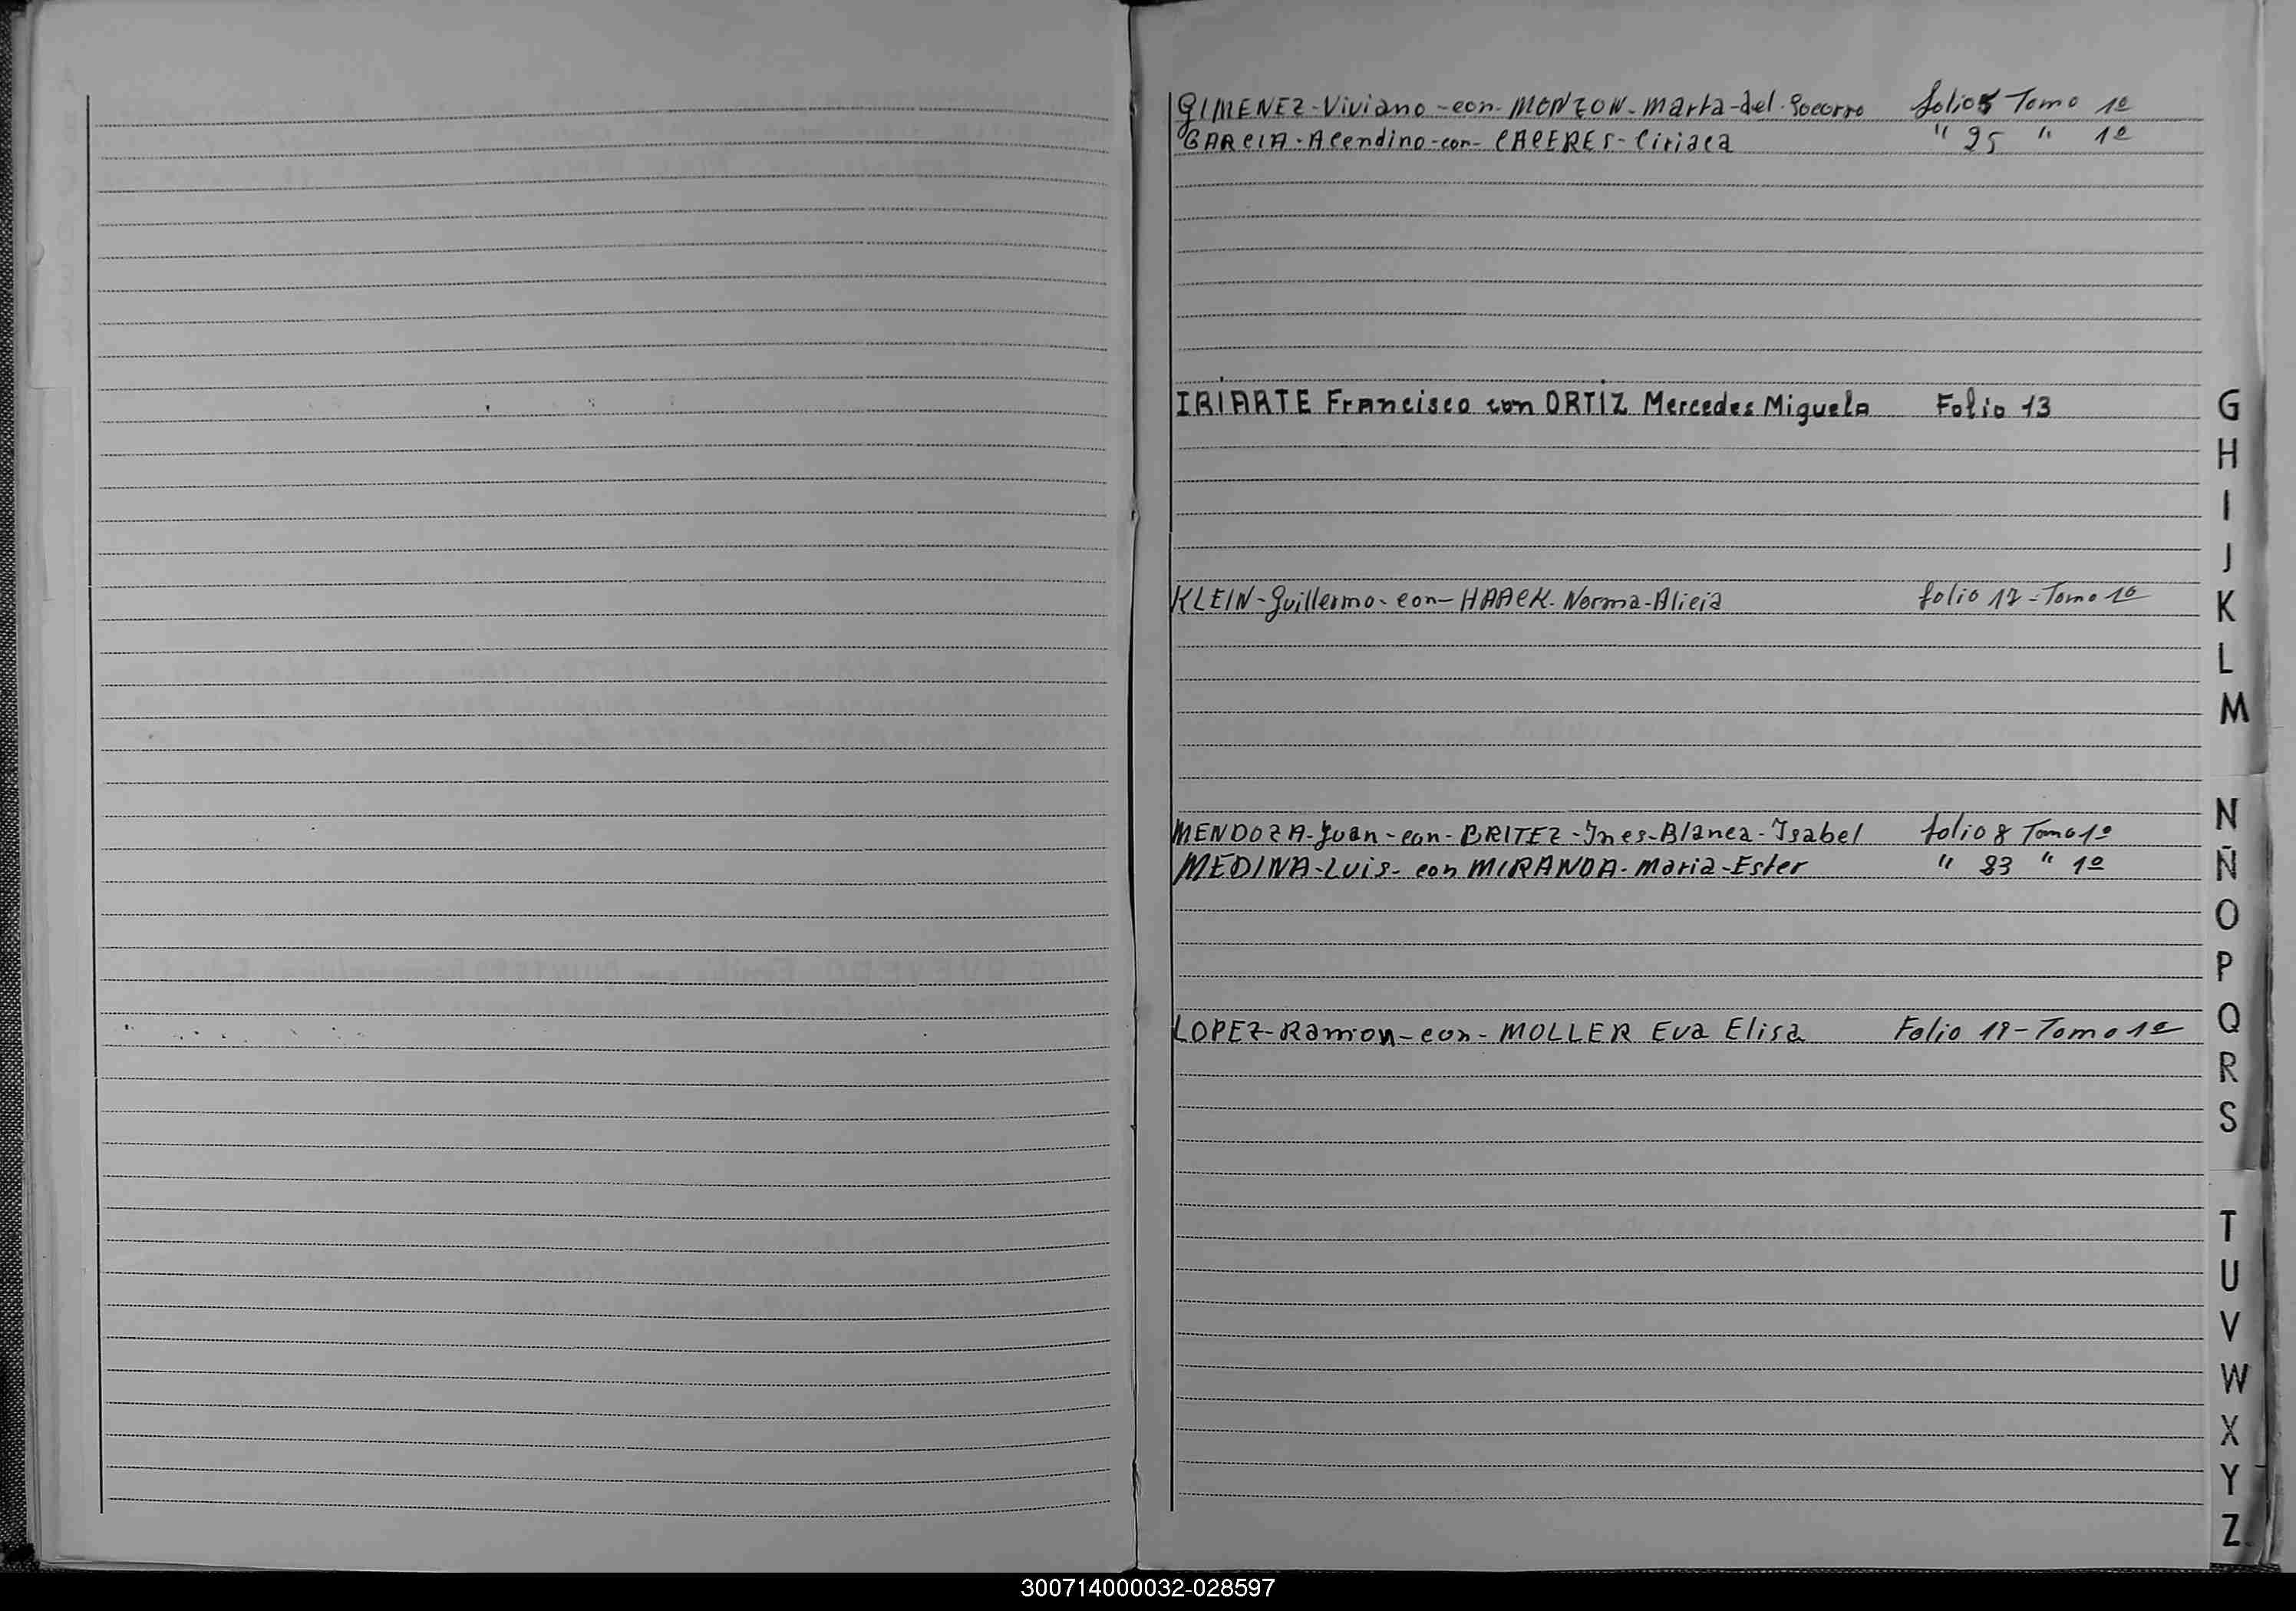 GIMENEZ-Viviano-con-MONZON-Marta-del-Socorro folio 5 Tomo 1º
GARCIA-Acendino-con-CACERES-Ciriaca " 25 " 1º
IRIARTE Francisco con ORTIZ Mercedes Miguela Folio 13
KLEIN-Guillermo-con-HAACK-Norma-Alicia folio 17-Tomo 1º
MENDOZA-Juan-con-BRITEZ-Ines-Blanca-Isabel folio 8 Tomo 1º
MEDINA-Luis-con MIRANDA-Maria-Ester " 23 " 1º
LOPEZ-Ramon-con-MOLLER Eva Elisa Folio 18-Tomo 1º
G
H
I
J
K
L
M
N
Ñ
O
P
Q
R
S
T
U
V
W
X
Y
Z
300714000032-028597